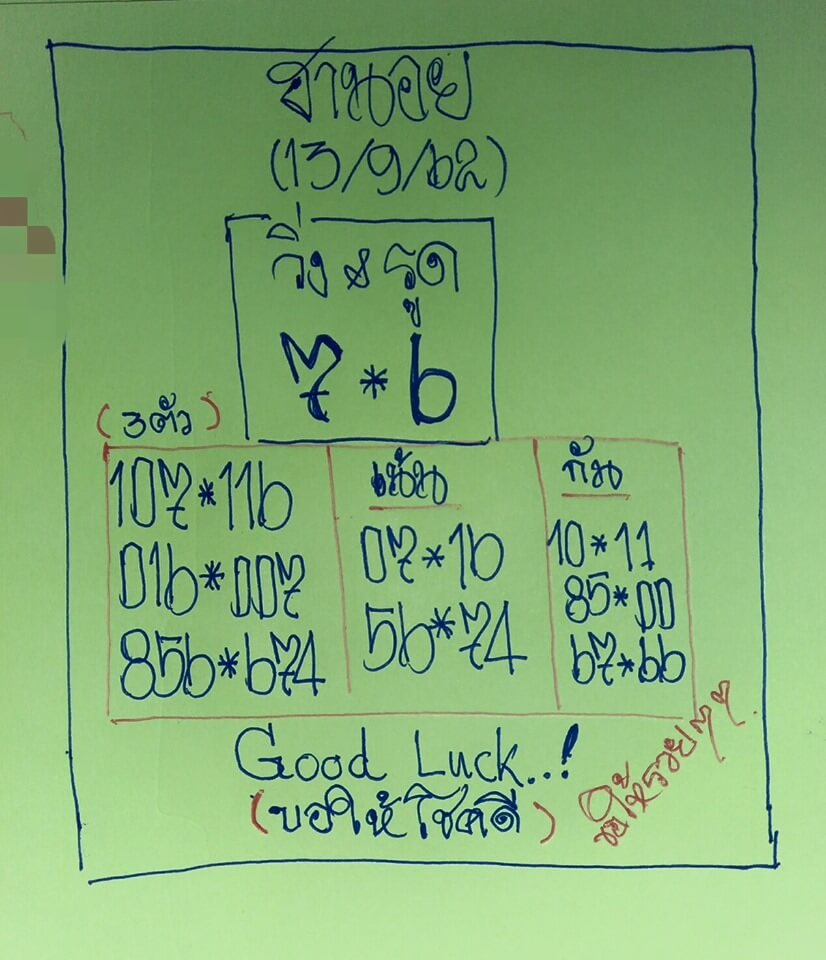 ฮานอย
(13/9/62)
วิ่ง & รูด
7 * 6
(3ตัว)
107*116
016*007
856*674
เน้น
07*16
56*74
กัน
10*11
85*00
67*66
Good Luck..!
(ขอให้โชคดี)
ขอให้รวยๆๆ